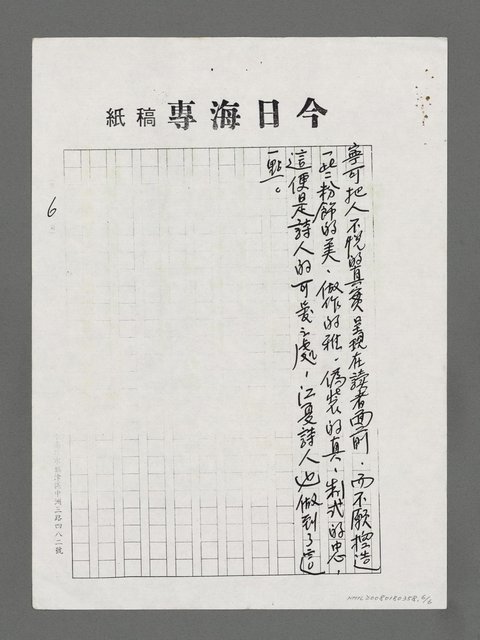 今日海專稿紙
寧可把人不悅的真實呈現在讀者面前，而不願捏造
一些粉飾的美、做作的雅、偽裝的真、制式的忠，
這便是詩人的可愛之處，江夏詩人也做到了這
一點。
6
市旗津區中洲三路四八二號
NMTL20080180358, 6/6